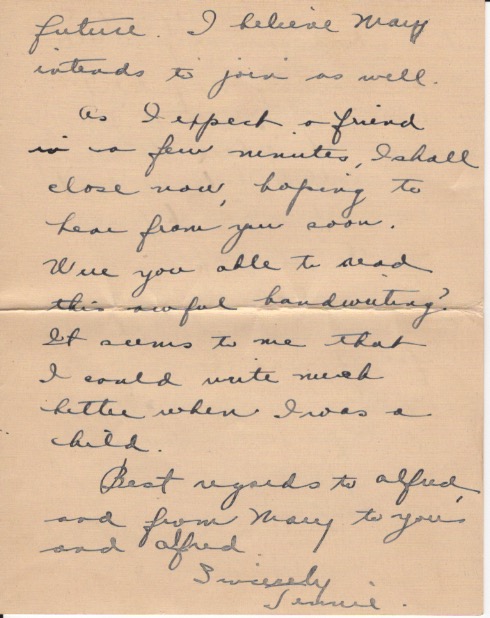 future. I believe Mary
intends to join as well.
As I expect a friend
in a few minutes, I shall
close now, hoping to
hear from you soon.
Were you able to read
this awful handwriting?
It seems to me that
I could write much
better when I was a
child.
Best regards to Alfred,
and from Mary to you
and Alfred.
Sincerely
Jennie.